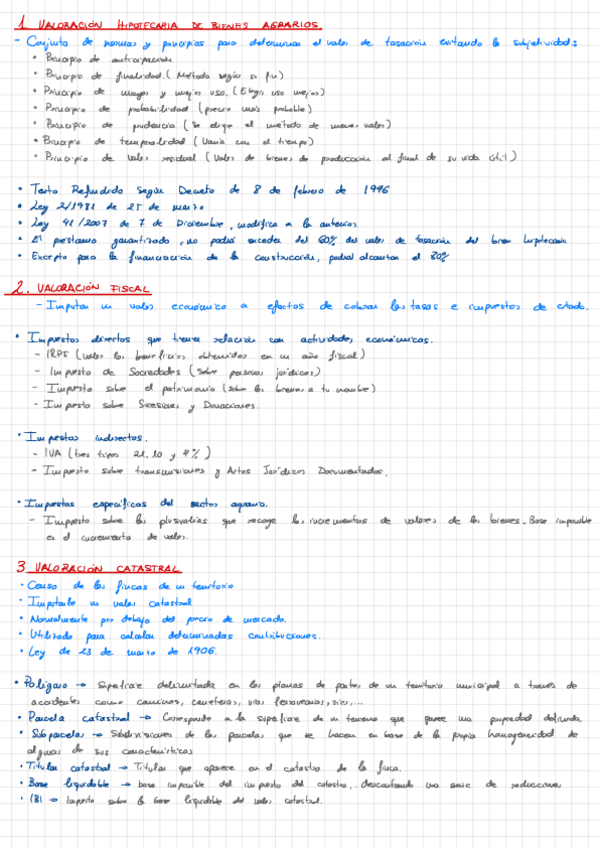 1. VALORACIÓN HIPOTECARIA DE BIENES AGRARIOS.
- Conjunto de normas y principios para determinar el valor de tasación evitando la subjetividad:
• Principio de anticipación
• Principio de finalidad. (Método según su fin)
• Principio de mayor y mejor uso. (Elegir uso mejor)
• Principio de probabilidad (precio más probable)
• Principio de prudencia (Se elige el método de menor valor)
• Principio de temporalidad (Varía con el tiempo)
• Principio de valor residual (Valor de bienes de producción al final de su vida útil)
• Texto Refundido según Decreto de 8 de febrero de 1946
• Ley 2/1981 de 25 de marzo
• Ley 41/2007 de 7 de Diciembre, modifica a la anterior
• El préstamo garantizado, no podrá exceder del 60% del valor de tasación del bien hipotecario
• Excepto para la financiación de la construcción, podrá alcanzar el 80%
2. VALORACIÓN FISCAL
- Imputar un valor económico a efectos de cobrar las tasas e impuestos de estado.
• Impuestos directos que tienen relación con actividades económicas.
- IRPF (valor los beneficios obtenidos en un año fiscal)
- Impuesto de Sociedades (sobre personas jurídicas)
- Impuesto sobre el patrimonio (sobre los bienes a tu nombre)
- Impuesto sobre Sucesiones y Donaciones.
• Impuestos indirectos.
- IVA (tres tipos 21, 10 y 4%)
- Impuesto sobre transmisiones y Actos Jurídicos Documentados.
• Impuestos específicos del sector agrario.
- Impuesto sobre las plusvalías que recoge los incrementos de valores de los bienes. Base imponible
es el incremento de valor.
3 VALORACIÓN CATASTRAL
• Censo de las fincas de un territorio
• Imputarle un valor catastral
• Normalmente por debajo del precio de mercado.
• Utilizado para calcular determinadas contribuciones.
• Ley de 23 de marzo de 1906.
• Polígono → Superficie delimitada en los planos de partes de un territorio municipal a través de
accidentes como caminos, carreteras, vías ferroviarias, ríos...
• Parcela catastral → Corresponde a la superficie de un terreno que posee una propiedad definida.
• Subparcela → Subdivisiones de las parcelas que se hacen en base de la propia homogeneidad de
algunas de sus características
• Titular catastral → Titular que aparece en el catastro de la finca.
• Base liquidable → base imponible del impuesto del catastro, descontando una serie de reducciones
• IBI → Impuesto sobre la base liquidable del valor catastral.